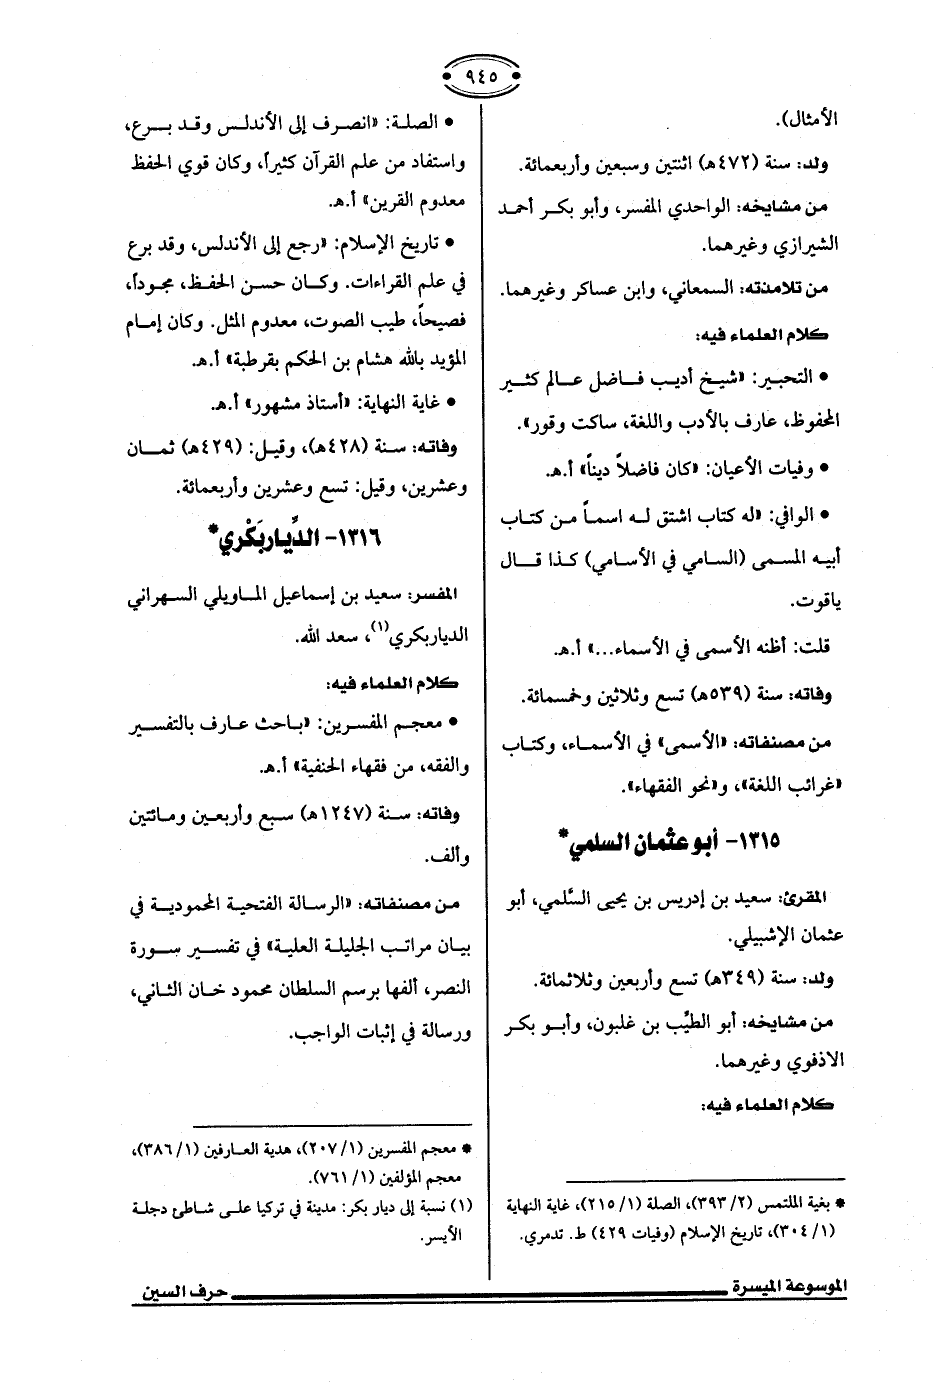 ٩٤٥
الأمثال).
ولد: سنة (٤٧٢هـ) اثنتين وسبعين وأربعمائة.
من مشايخه: الواحدي المفسر، وأبو بكر أحمد
الشيرازي وغيرهما.
من تلامذته: السمعاني، وابن عساكر وغيرهما.
كلام العلماء فيه:
• التحبير: «شيخ أديب فاضل عالم كثير
المحفوظ، عارف بالأدب واللغة، ساكت وقور».
• وفيات الأعيان: «كان فاضلاً ديناً» أ.هـ.
• الوافي: «له كتاب اشتق له اسماً من كتاب
أبيه المسمى (السامي في الأسامي) كذا قال
ياقوت.
قلت: أظنه الأسمى في الأسماء...» أ.هـ.
وفاته: سنة (٥٣٩هـ) تسع وثلاثين وخمسمائة.
من مصنفاته: «الأسمى» في الأسماء، وكتاب
«غرائب اللغة»، و«نحو الفقهاء».
١٣١٥- أبو عثمان السلمي*
المقرئ: سعيد بن إدريس بن يحيى السُّلمي، أبو
عثمان الإشبيلي.
ولد: سنة (٣٤٩هـ) تسع وأربعين وثلاثمائة.
من مشايخه: أبو الطيِّب بن غلبون، وأبو بكر
الاذفوي وغيرهما.
كلام العلماء فيه:
* بغية الملتمس (٢/ ٣٩٣)، الصلة (١/ ٢١٥)، غاية النهاية
(١/ ٣٠٤)، تاريخ الإسلام (وفيات ٤٢٩) ط. تدمري.
• الصلة: «انصرف إلى الأندلس وقد برع،
واستفاد من علم القرآن كثيراً، وكان قوي الحفظ
معدوم القرين» أ.هـ.
• تاريخ الإسلام: «رجع إلى الأندلس، وقد برع
في علم القراءات. وكان حسن الحفظ، مجوداً،
فصيحاً، طيب الصوت، معدوم المثل. وكان إمام
المؤيد بالله هشام بن الحكم بقرطبة» أ.هـ.
• غاية النهاية: «أستاذ مشهور» أ.هـ.
وفاته: سنة (٤٢٨هـ)، وقيل: (٤٢٩هـ) ثمان
وعشرين، وقيل: تسع وعشرين وأربعمائة.
١٣١٦- الدِّياربَكْري*
المفسر: سعيد بن إسماعيل الماويلي السهراني
الدياربكري(١)، سعد الله.
كلام العلماء فيه:
• معجم المفسرين: «باحث عارف بالتفسير
والفقه، من فقهاء الحنفية» أ.هـ.
وفاته: سنة (١٢٤٧هـ) سبع وأربعين ومائتين
وألف.
من مصنفاته: «الرسالة الفتحية المحمودية في
بيان مراتب الجليلة العلية» في تفسير سورة
النصر، ألفها برسم السلطان محمود خان الثاني،
ورسالة في إثبات الواجب.
* معجم المفسرين (١/ ٢٠٧)، هدية العارفين (١/ ٣٨٦)،
معجم المؤلفين (١/ ٧٦١).
(١) نسبة إلى ديار بكر: مدينة في تركيا على شاطئ دجلة
الأيسر.
الموسوعة الميسرة
حرف السين